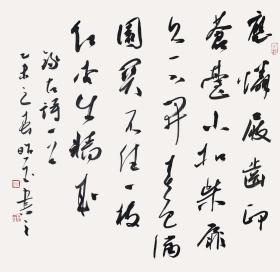 應憐屐齒印
蒼苔小扣柴扉
久不開春色滿
園關不住一枝
紅杏出牆來
録古詩一首
乙未之春書